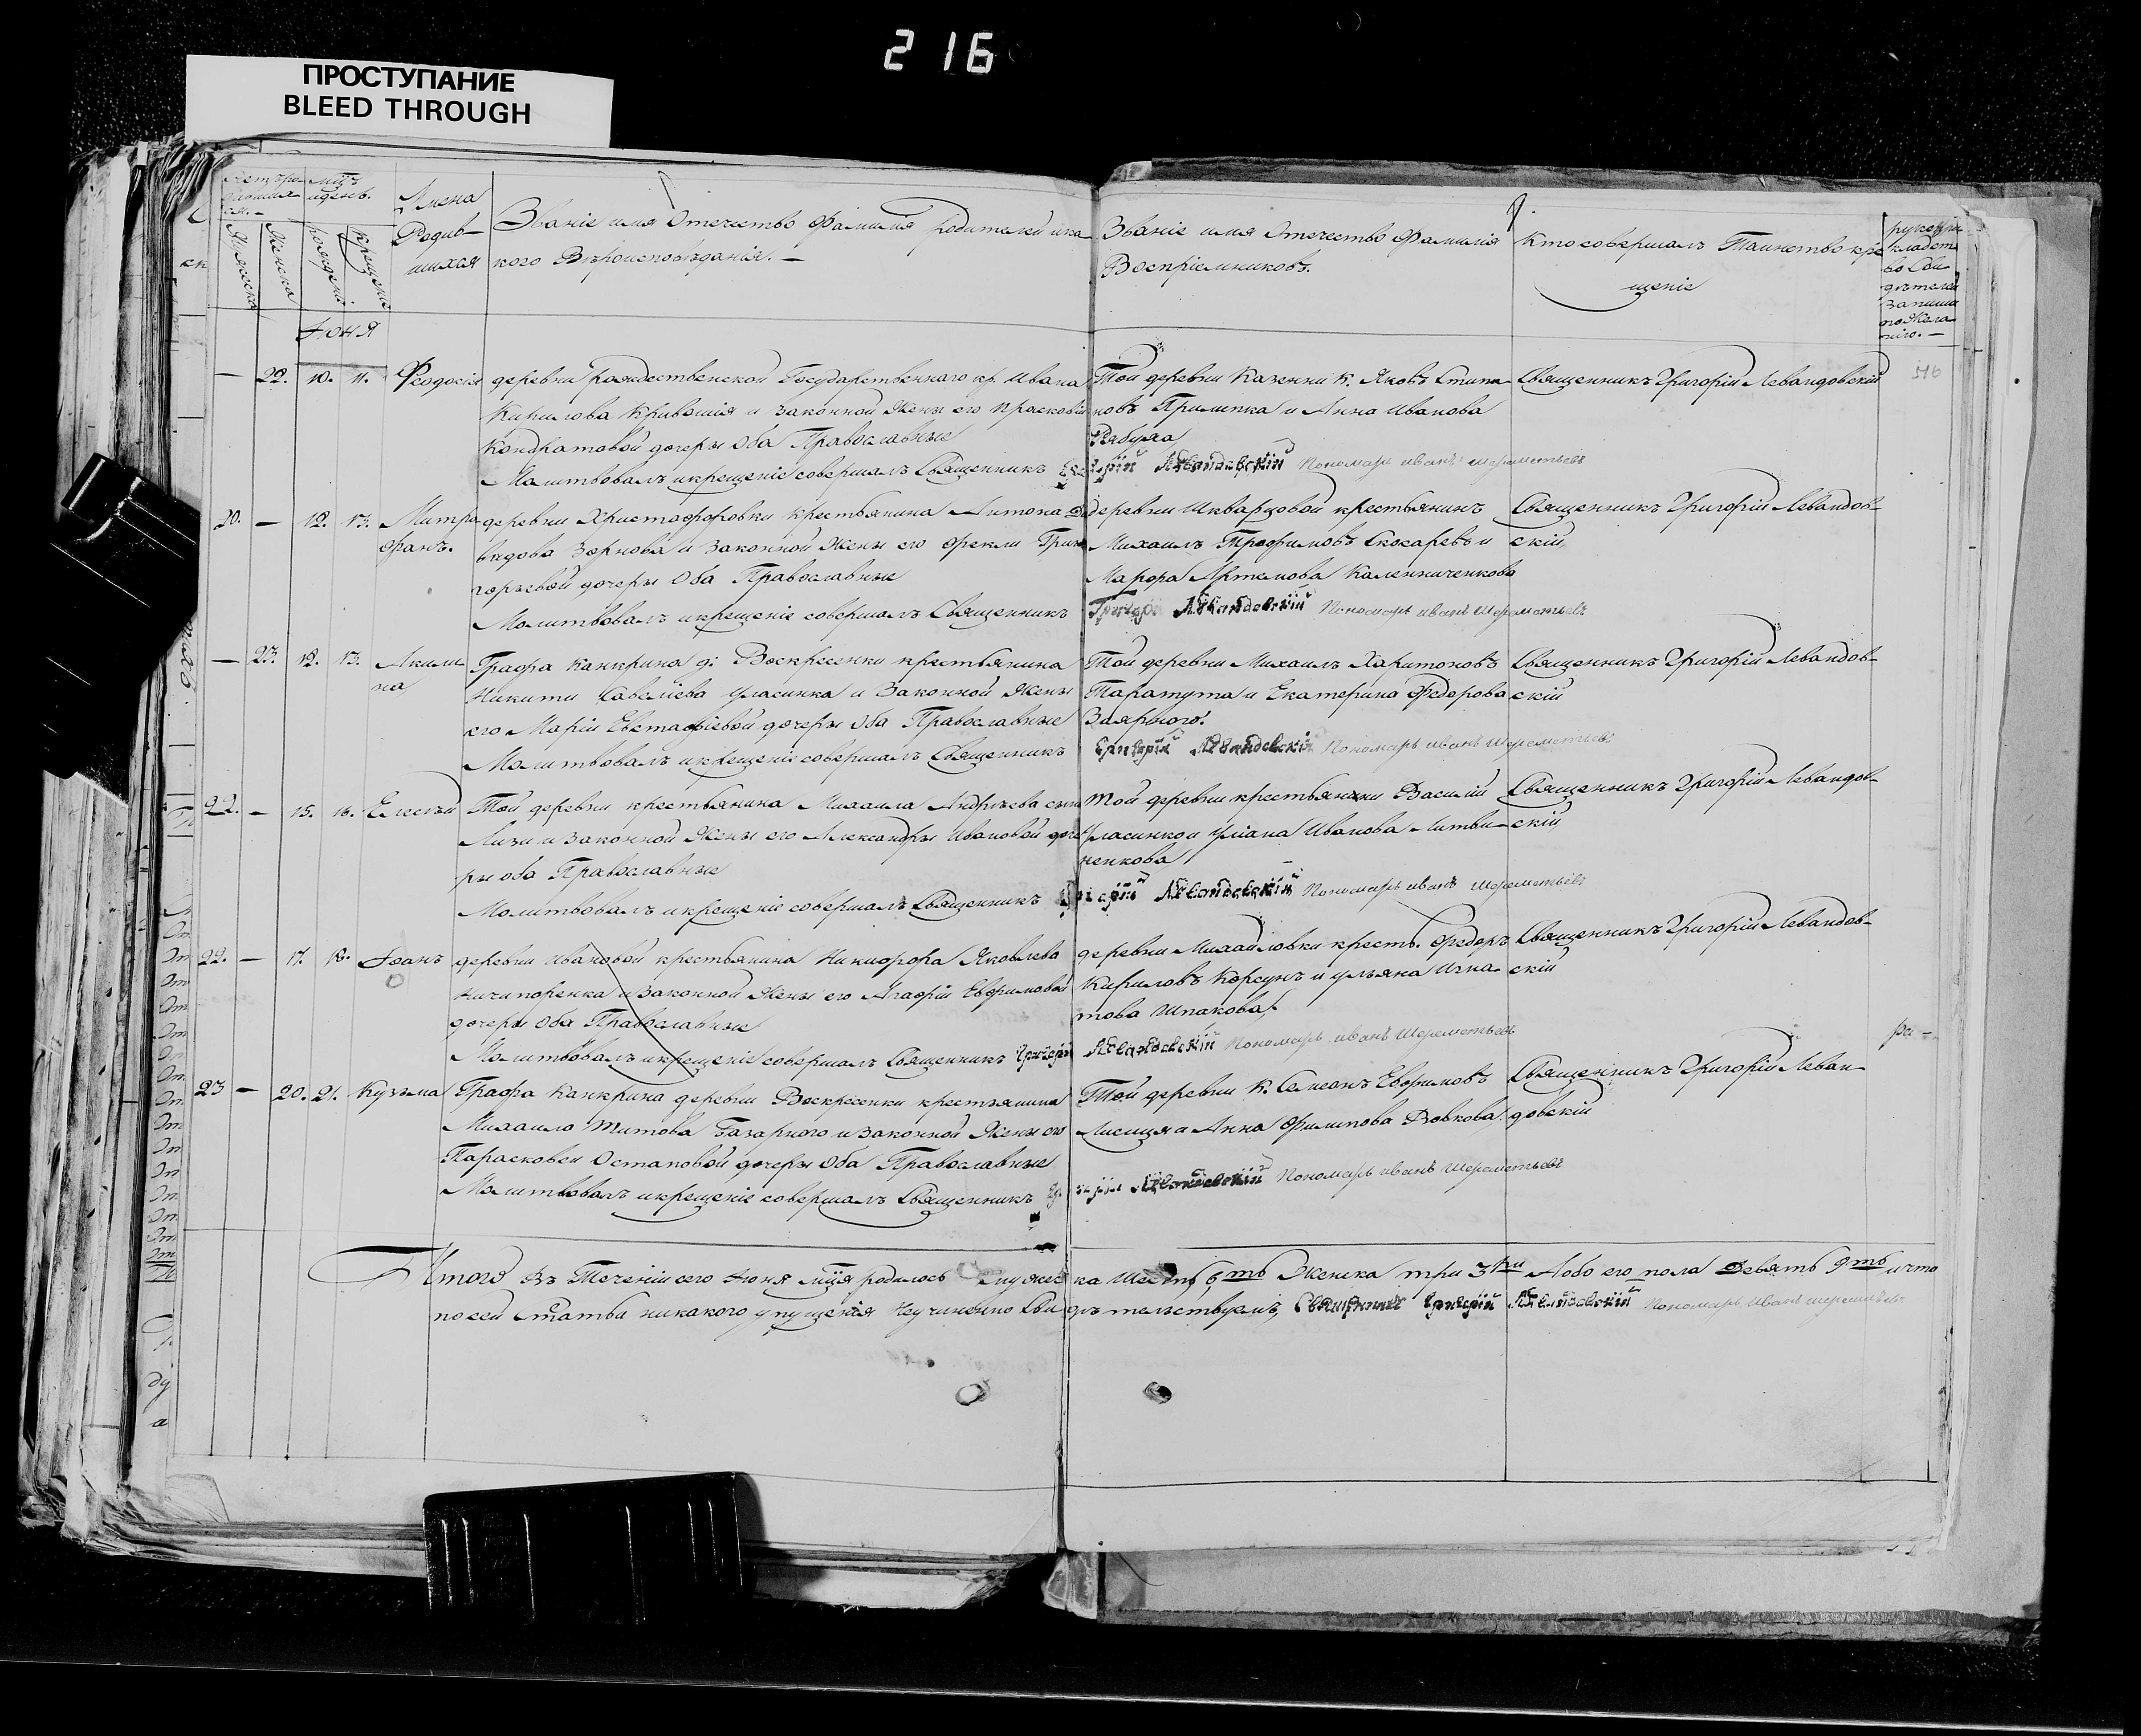 216
ПРОСТУПАНИЕ
BLEED THROUGH
Имена
Родив-
шихся
Званіе имя Отечество Фамилія родителей и ка
кого Вѣроисповѣданія. —
Званіе имя Отечество Фамилія
Воспріемниковъ.
Кто совершалъ Таинство кре
щеніе
Іюня
— 22. 10. 11. Феодосія
деревни рождественской Государственнаго кр. Ивана
Кирилова Кравошія и законной Жены его Прасковіи
Кондратовой дочеры Оба Православные
Молитвовалъ и крещеніе совершалъ Священникъ
Той деревни Казенни к. Яковъ Степа
новъ Примпка и Анна Иванова
Рябуха
Григорій Левандовскій Пономарь иванъ шереметьевъ
Священникъ Григорій Левандовскій
516
20. — 12. 13. Митро
фанъ.
деревни Христофоровки крестьянина Антона Да
видова Зорнова и законной Жены его Феклы Гри
горьевой дочеры Оба Православные
Молитвовалъ и крещеніе совершалъ Священникъ
деревни Шкварцовой крестьянинъ
Михаилъ Трофимовъ Скосаревъ и
Марфа Артемова Каленниченкова
Григорій Левандовскій Пономарь иванъ Шереметьевъ
Священникъ Григорій Левандов-
скій
— 23. 12. 13. Акили
на
Графа Канкрина д: Воскресенки крестьянина
Никити Савелієва Уласинка и Законной Жены
его Маріи Евстафіевой дочеры Оба Православные
Молитвовалъ и крещеніе совершалъ Священникъ
Той деревни Михаилъ Харитоновъ
Таратута и Екатерина Федорова
Заярного.
Григорій Левандовскій Пономарь иванъ Шереметьевъ
Священникъ Григорій Левандов-
скій
22. — 15. 16. Елесѣй
Той деревни крестьянина Михаила Андрѣева сына
Лизи и законной Жены его Александры Ивановой доче
ры оба Православные
Молитвовалъ и крещеніе совершалъ Священникъ
Той деревни крестьянини Василій
Уласинкои Уліана Иванова Литви-
ненкова
Григорій Левандовскій Пономарь иванъ шереметьевъ
Священникъ Григорій Левандов-
скій
22. — 17. 18. Іоанъ
деревни Ивановой крестьянина Никифора Яковлева
Ничипоренка и Законной Жены его Агафіи Ефимовой
дочеры Оба Православные
Молитвовалъ и крещеніе совершалъ Священникъ Григорій
деревни Михайловки крестъ. Федоръ
Кириловъ Корсунъ и ульяна Игна-
това Шпакова
Левандовскій Пономарь иванъ Шереметьевъ
Священникъ Григорій Левандов-
скій
23 — 20. 21. Кузьма
Графа Канкрина деревни Воскресенки крестьянина
Михаило Титова Базарного и законной Жены его
Парасковеи Остаповой дочеры Оба Православные
Молитвовалъ и крещеніе совершалъ Священникъ
Той деревни К. Семеонъ Евфимовъ
Лисица и Анна Филипова Вовкова.
Левандовскій Пономарь иванъ Шереметьевъ
Священникъ Григорій Леван-
довскій
Итого Въ Теченіи сего Іюня мца родилось Мужес ка Шесть 6ть Женска три 3три А обо его пола Девять 9ть и что
по сей Статьѣ никакого упущенія Неучинено Сви дѣтельствуемъ, Священникъ Григорій Левандовскій Пономарь Иванъ шереметьевъ